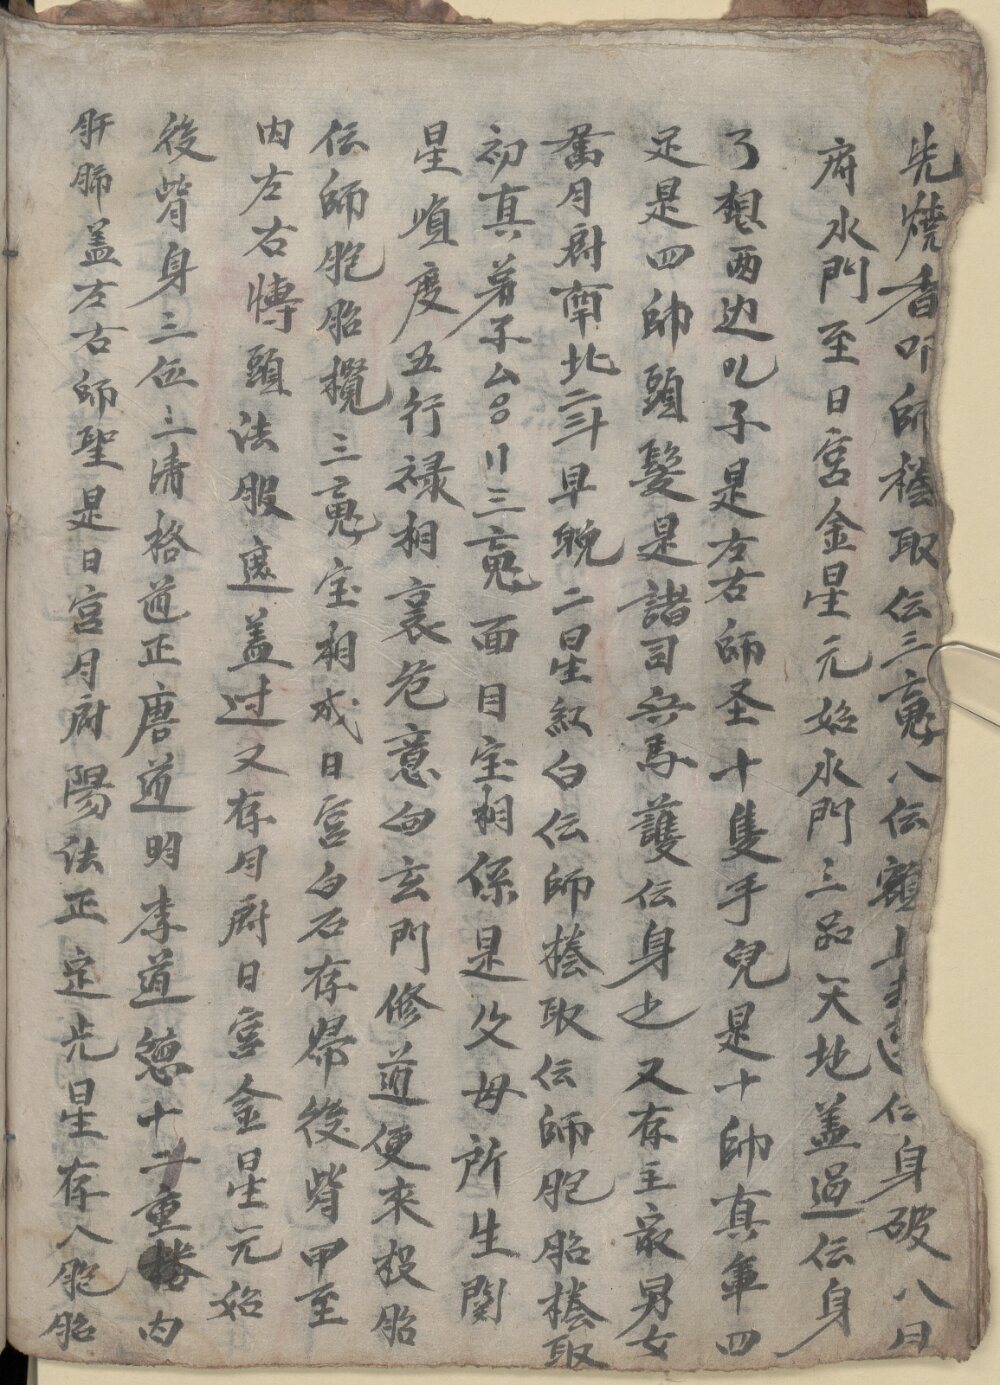 先燒香叩師樁取伝三䰟八伝額上伝身破八月
府水門至日宮金星元始水門三品天地盖過伝身
了想两边儿子是左右師圣十隻手兒是十帥真軍四
足是四帥頭髮是諸司兵馬護伝身也又存主家男女
奮月府南北二斗早晚二星紅白伝師樁取伝師胞胎樁取
初真若不厶吕〢三䰟面目宝相係是父母所生関
星順度五行禄相裏危意向玄門修道便來投胎
伝師胞胎攬三䰟宝相成日宮白石存帰後背甲至
内左右慱頭法服遮盖过又存月府日宮金星元始
後背身三伍三清格道正唐道明李道德十二重樓内
肝肺盖左右師聖是日宮月府陽法正定光星存入胞胎